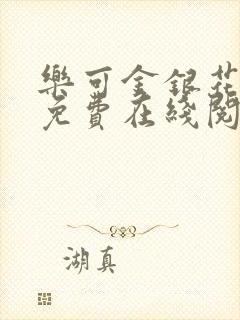 樂可金銀花
免費在綫閱
湖真